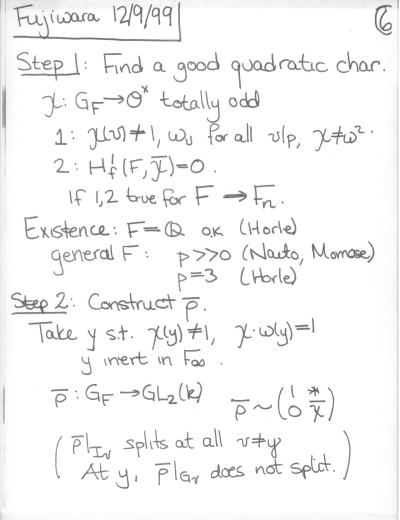 Fujiwara 12/9/99 6
Step 1: Find a good quadratic char.
χ: G_F → O^× totally odd
1: χ(v) ≠ 1, ω_v for all v|p, χ ≠ ω².
2: H_f^1(F, χ̄) = 0.
If 1,2 true for F → F_n.
Existence: F = Q o.k. (Horie)
general F: p >> 0 (Naito, Momose)
p = 3 (Horie)
Step 2: Construct ρ̄.
Take y s.t. χ(y) ≠ 1, χ·ω(y) = 1
y inert in F_∞.
ρ̄: G_F → GL_2(k) ρ̄ ~ (1 * 0 χ̄)
(ρ̄|_{I_v} splits at all v ≠ y
At y, ρ̄|_{G_v} does not split.)